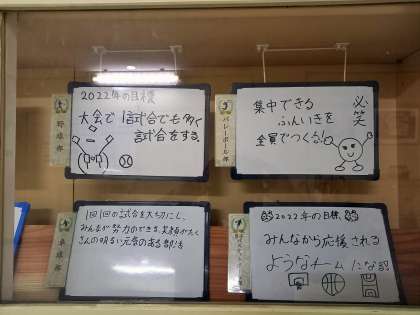 2022年の目標
大会で1試合でも多く
試合をする。
野球部
集中できる
ふんいきを
全員でつくる!
必笑
バレーボール部
1回1回の試合を大切にし、
みんなが努力のできる、笑顔がたく
さんの明るい元気のある部活
卓球部
2022年の目標
みんなから応援される
ようなチームになる!!